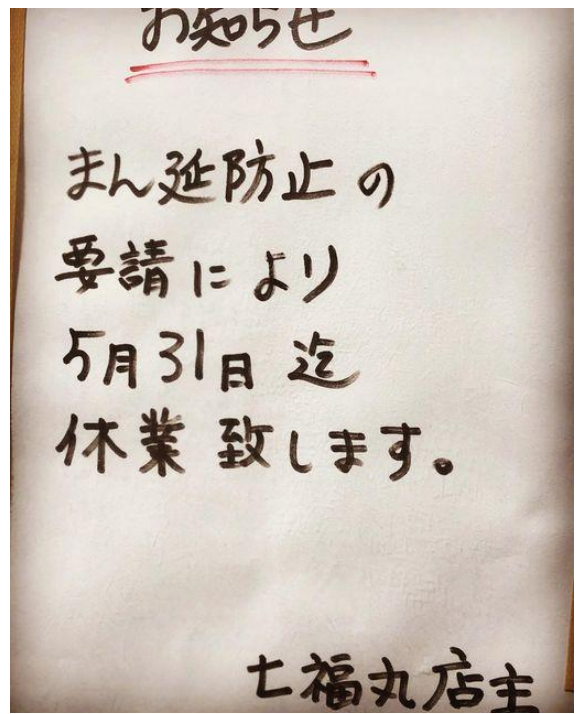 お知らせ
まん延防止の
要請により
5月31日 迄
休業 致します。
七福丸店主